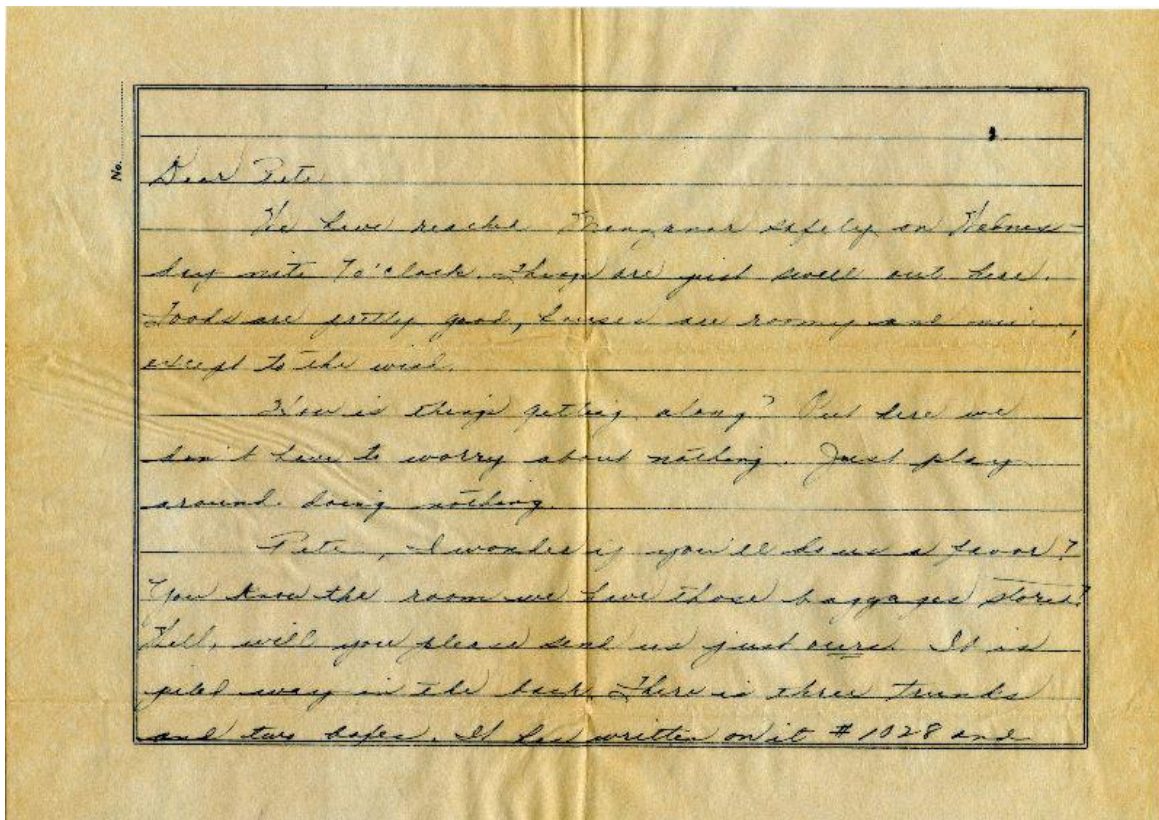 No.
Dear Pete
We have reached Manzanar safely on Wednes-
day nite 7 o'clock. Things are just swell out here.
Foods are pretty good, houses are roomy and nice,
except to the wind.
How is things getting along? Out here we
don't have to worry about nothing. Just play
around doing nothing.
Pete, I wonder if you'll do us a favor?
You know the room we have those baggages stored?
Well, will you please send us just ours. It is
piled way in the back. There is three trunks
and two boxes. It has written on it #1028 and